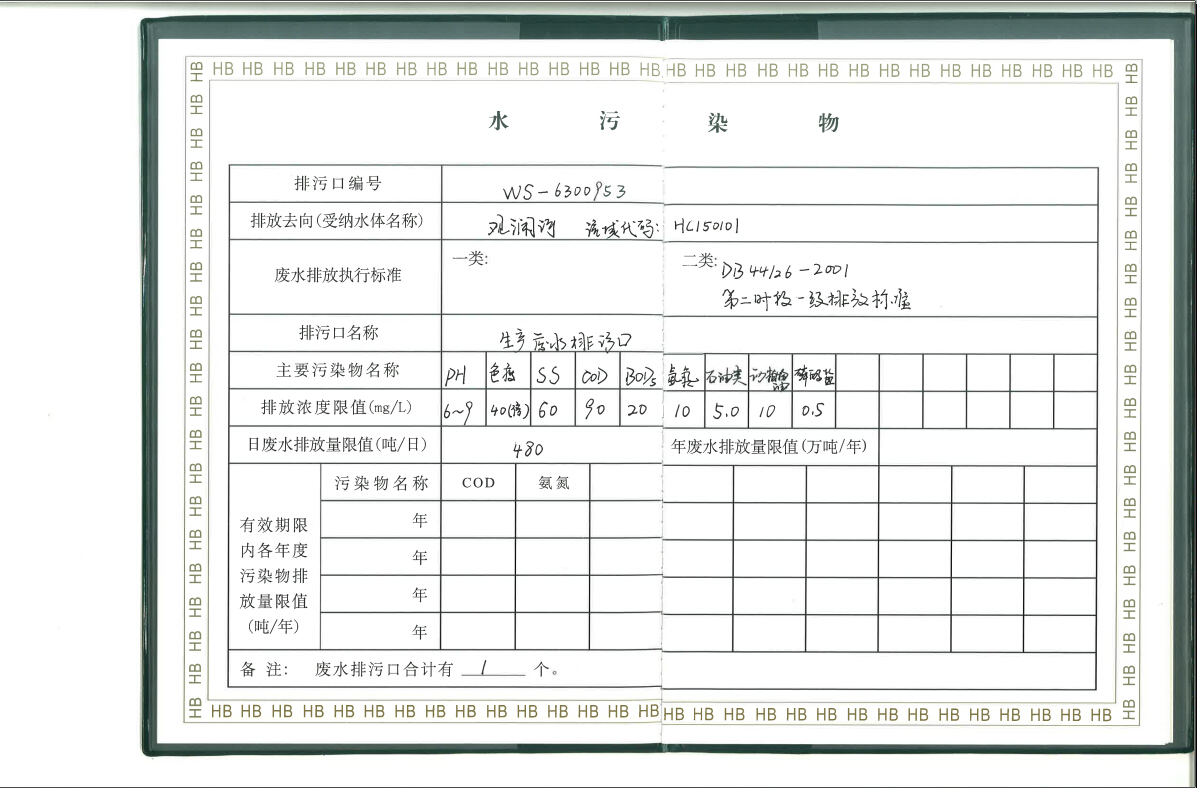 HB HB HB HB HB HB HB HB HB HB HB HB HB HB HB HB HB HB HB HB HB HB HB HB HB HB HB HB HB HB
水 污 染 物
排污口编号 WS-6300953
排放去向(受纳水体名称) 观澜河 流域代码: HL150101
废水排放执行标准 一类: 二类: DB44/26-2001
第二时段一级排放标准
排污口名称 生产废水排污口
主要污染物名称 PH 色度 SS COD BOD5 氨氮 石油类 动植物油 磷酸盐
排放浓度限值(mg/L) 6~9 40(倍) 60 90 20 10 5.0 10 0.5
日废水排放量限值(吨/日) 480 年废水排放量限值(万吨/年)
有效期限内各年度污染物排放量限值(吨/年) 污染物名称 COD 氨氮
年
年
年
年
备 注: 废水排污口合计有 1 个。
HB HB HB HB HB HB HB HB HB HB HB HB HB HB HB HB HB HB HB HB HB HB HB HB HB HB HB HB HB HB